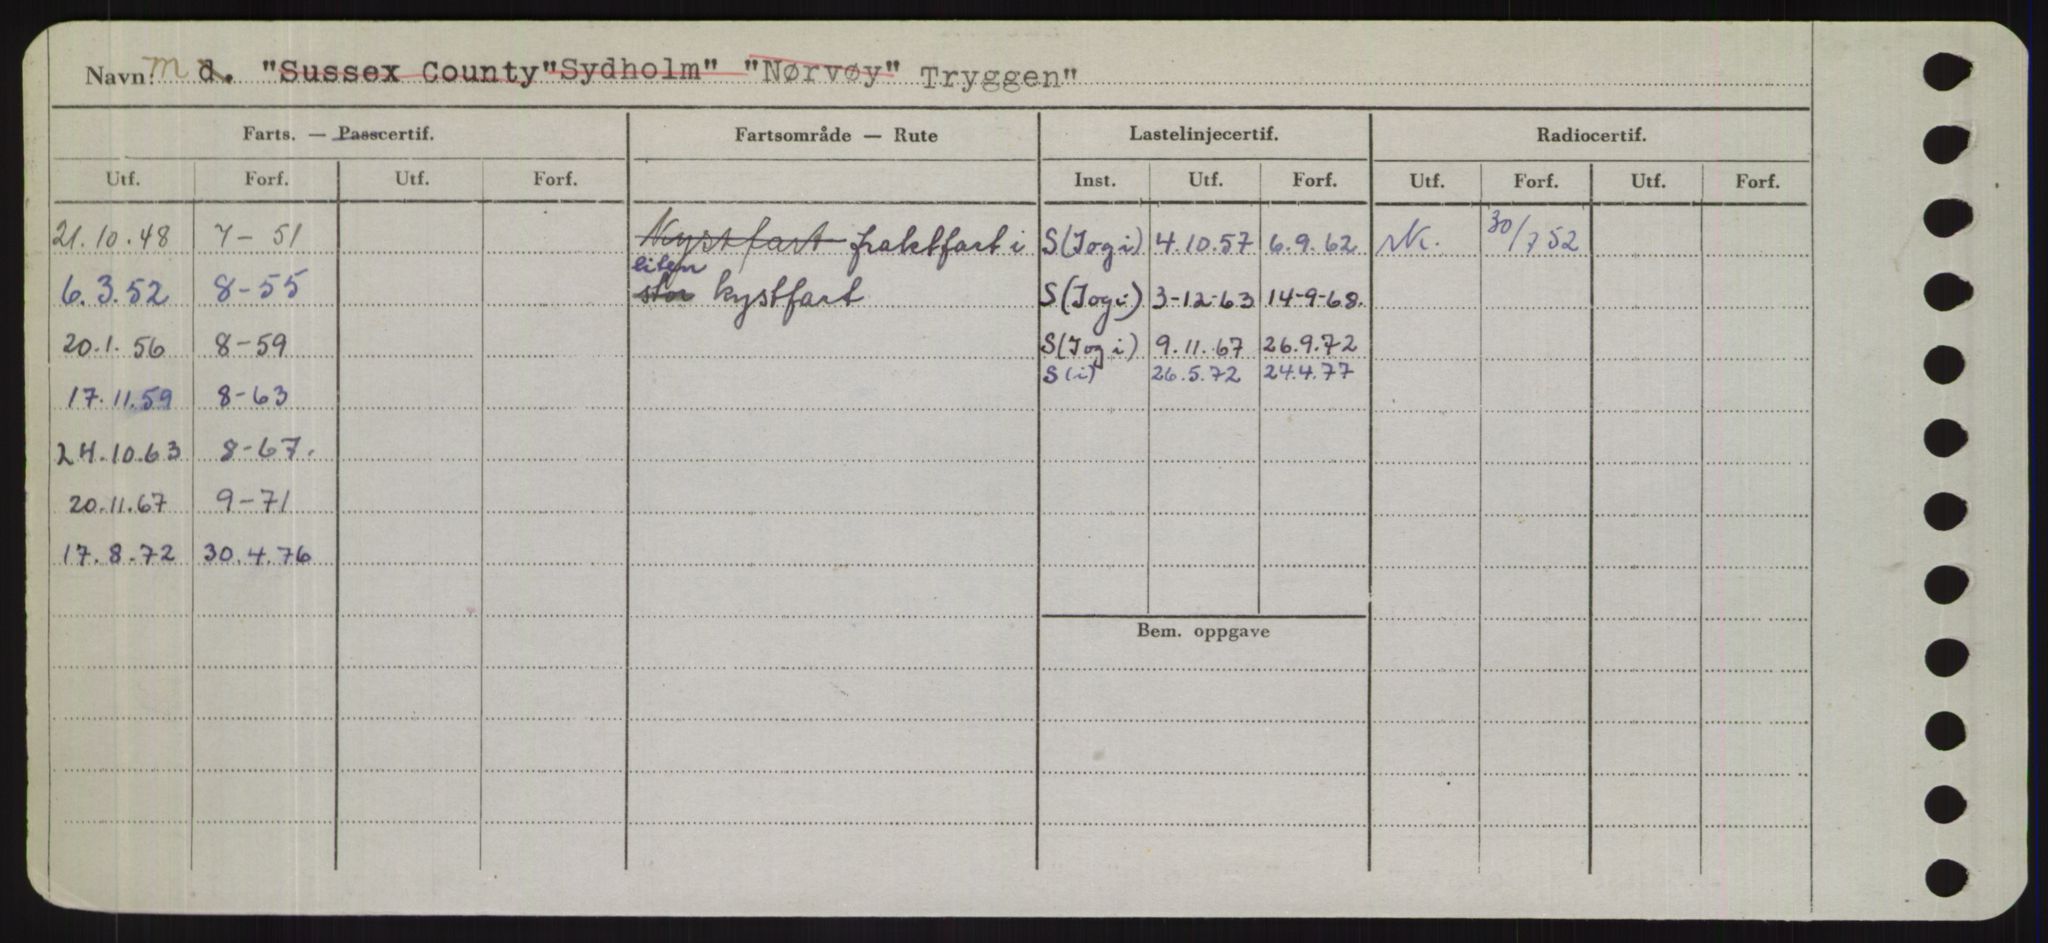 Navn: m d. "Sussex County" "Sydholm" "Nørvøy" Tryggen"
Farts. — Passcertif. Fartsområde — Rute Lastelinjecertif. Radiocertif.
Utf. Forf. Utf. Forf. Inst. Utf. Forf. Utf. Forf. Utf. Forf.
21.10.48 7-51 Kystfart fraktfart i S(Iogi) 4.10.57 6.9.62 30/7 52
liten
6.3.52 8-55 stor kystfart S(Iogi) 3-12-63 14-9-68.
20.1.56 8-59 S(Iogi) 9.11.67 26.9.72
S(i) 26.5.72 24.4.77
17.11.59 8-63
24.10.63 8-67.
20.11.67 9-71
17.8.72 30.4.76
Bem. oppgave